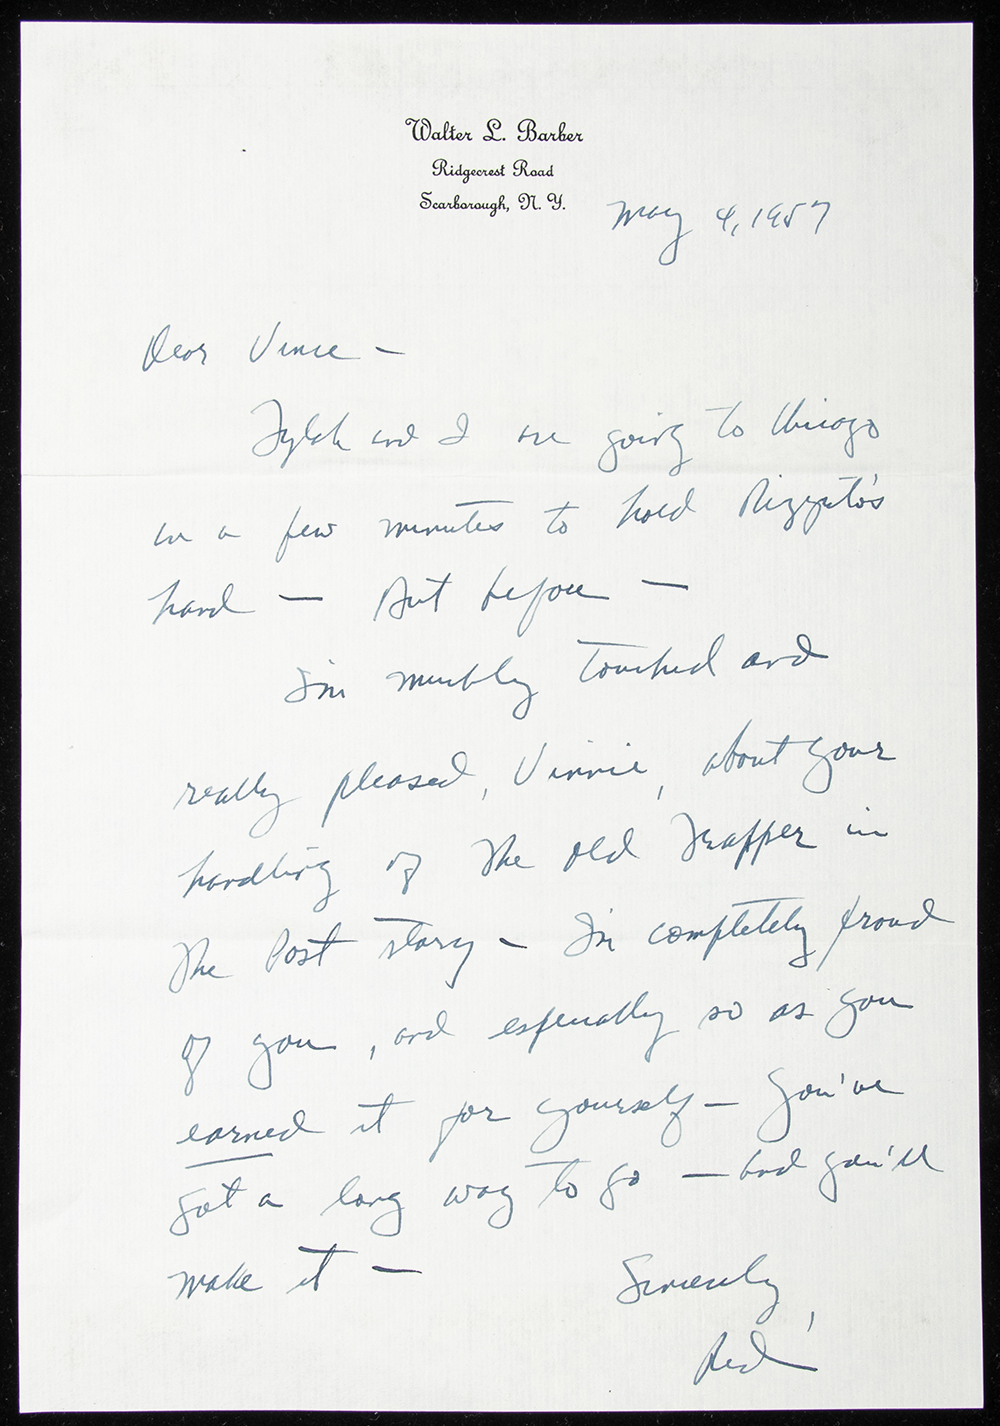 Walter L. Barber
Ridgecrest Road
Scarborough, N. Y.
May 4, 1957
Dear Vince —
Lylah and I are going to Chicago
in a few minutes to hold Rizzuto's
hand — But before —
I'm mightily touched and
really pleased, Vinnie, about your
handling of the old Trapper in
the Post story — I'm completely proud
of you, and especially so as you
earned it for yourself — You've
got a long way to go — and you'll
make it —
Sincerely,
Red